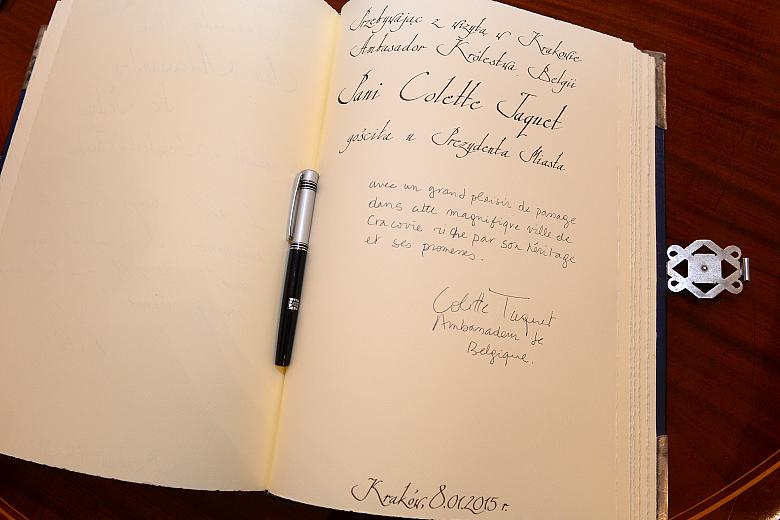 Przebywając z wizytą w Krakowie
Ambasador Królestwa Belgii
Pani Colette Taquet
gościła u Prezydenta Miasta
avec un grand plaisir de passage
dans cette magnifique ville de
Cracovie riche par son héritage
et ses promesses.
Colette Taquet
Ambassadeur de
Belgique.
Kraków, 8.01.2015 r.